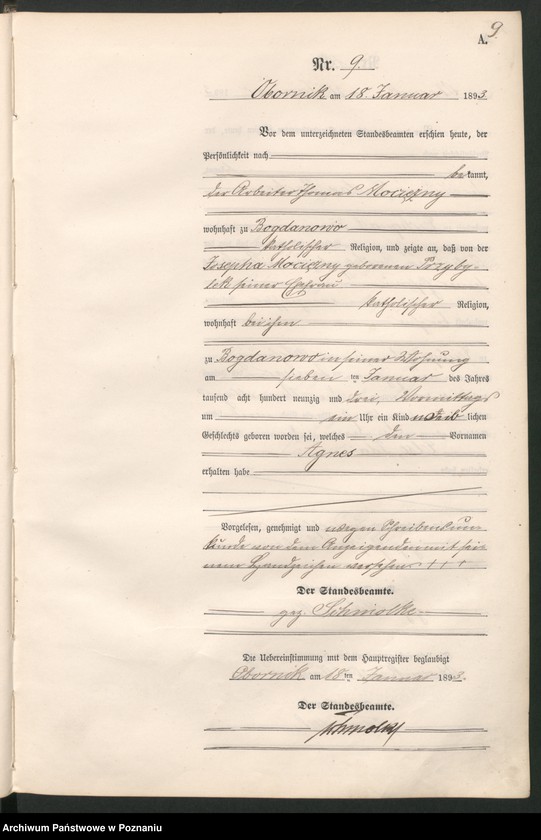 9
A.
Nr. 9.
Obornik am 18. Januar 1893
Vor dem unterzeichneten Standesbeamten erschien heute, der
Persönlichkeit nach
bekannt,
der Arbeiter Thomas Mociężny
wohnhaft zu Bogdanowo
katholischer Religion, und zeigte an, daß von der
Josepha Mociężny geborenen Przyby-
lek seiner Ehefrau
katholischer Religion,
wohnhaft bei ihm
zu Bogdanowo in seiner Wohnung
am sieben ten Januar des Jahres
tausend acht hundert neunzig und drei, Vormittags
um ein Uhr ein Kind weiblichen
Geschlechts geboren worden sei, welches den Vornamen
Agnes
erhalten habe
Vorgelesen, genehmigt und wegen Schreibensun-
kunde von dem Anzeigenden mit sei-
nem Handzeichen versehen + + +
Der Standesbeamte.
gez. Schmolke
Die Uebereinstimmung mit dem Hauptregister beglaubigt
Obornik am 18 ten Januar 1893.
Der Standesbeamte.
Schmolke
Archiwum Państwowe w Poznaniu